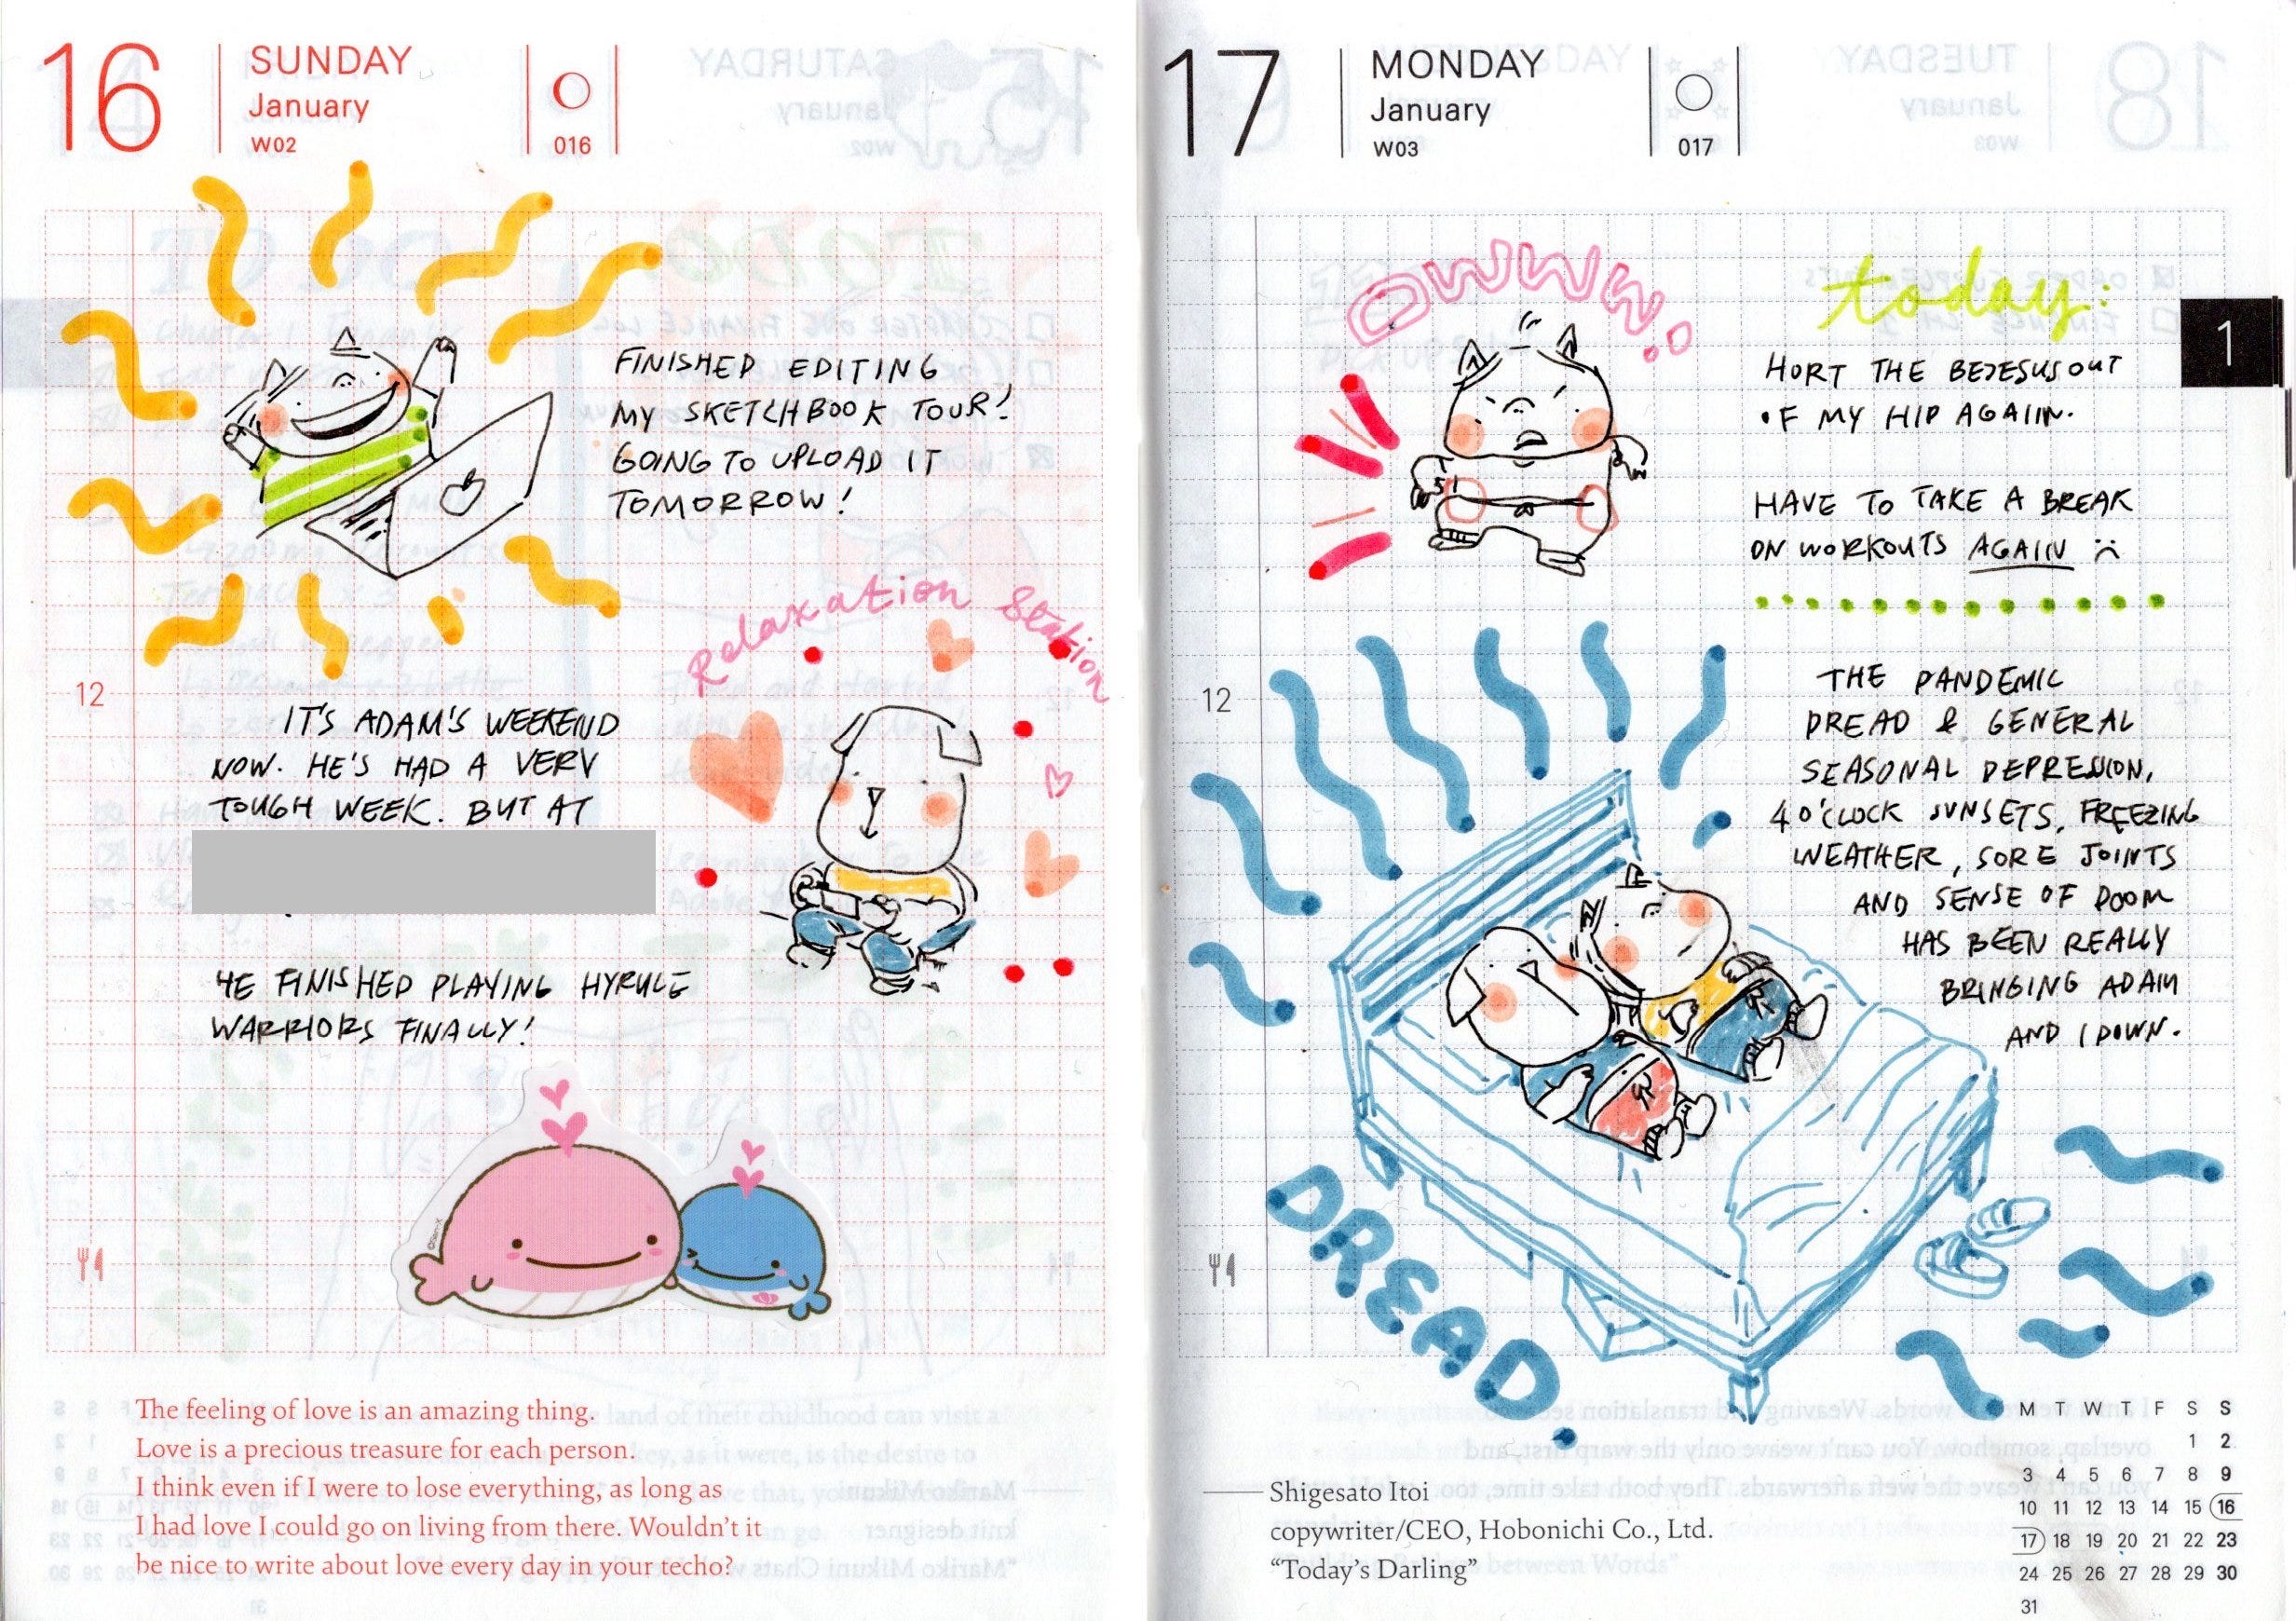 16
SUNDAY
January
W02
016
FINISHED EDITING
MY SKETCHBOOK TOUR!
GOING TO UPLOAD IT
TOMORROW!
Relaxation Station
12
IT'S ADAM'S WEEKEND
NOW. HE'S HAD A VERY
TOUGH WEEK. BUT AT
HE FINISHED PLAYING HYRULE
WARRIORS FINALLY!
The feeling of love is an amazing thing.
Love is a precious treasure for each person.
I think even if I were to lose everything, as long as
I had love I could go on living from there. Wouldn't it
be nice to write about love every day in your techo?
17
MONDAY
January
W03
017
OWWW!
today:
HURT THE BEJESUS OUT
OF MY HIP AGAIIN.
HAVE TO TAKE A BREAK
ON WORKOUTS AGAIN :(
1
12
THE PANDEMIC
DREAD & GENERAL
SEASONAL DEPRESSION,
4 O'CLOCK SUNSETS, FREEZING
WEATHER, SORE JOINTS
AND SENSE OF DOOM
HAS BEEN REALLY
BRINGING ADAM
AND I DOWN.
DREAD.
Shigesato Itoi
copywriter/CEO, Hobonichi Co., Ltd.
"Today's Darling"
M T W T F S S
1 2
3 4 5 6 7 8 9
10 11 12 13 14 15 16
17 18 19 20 21 22 23
24 25 26 27 28 29 30
31